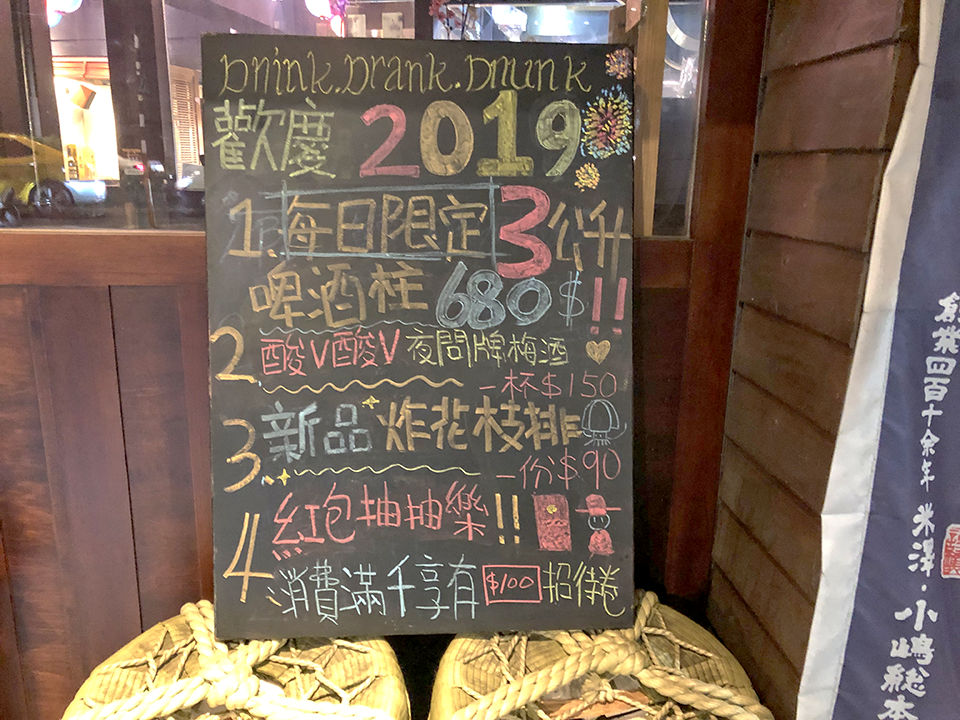 Drink.Drank.Drunk
歡慶 2019
1.每日限定3公升
啤酒柱680$!!
2.酸V酸V夜問牌梅酒
一杯$150
3.新品炸花枝排
一份$90
4.紅包抽抽樂!!
消費滿千享有$100招待卷
創業四百十余年 米澤・小嶋総本